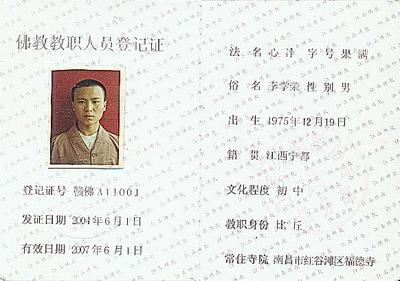 佛教教职人员登记证
登记证号 赣佛 A11001
发证日期 2004年6月1日
有效日期 2007年6月1日
法 名 心 字号 果 满
俗 名 李学荣 性 别 男
出 生 1975年12月19日
籍 贯 江西宁都
文化程度 初 中
教职身份 比 丘
常住寺院 南昌市红谷滩区福德寺